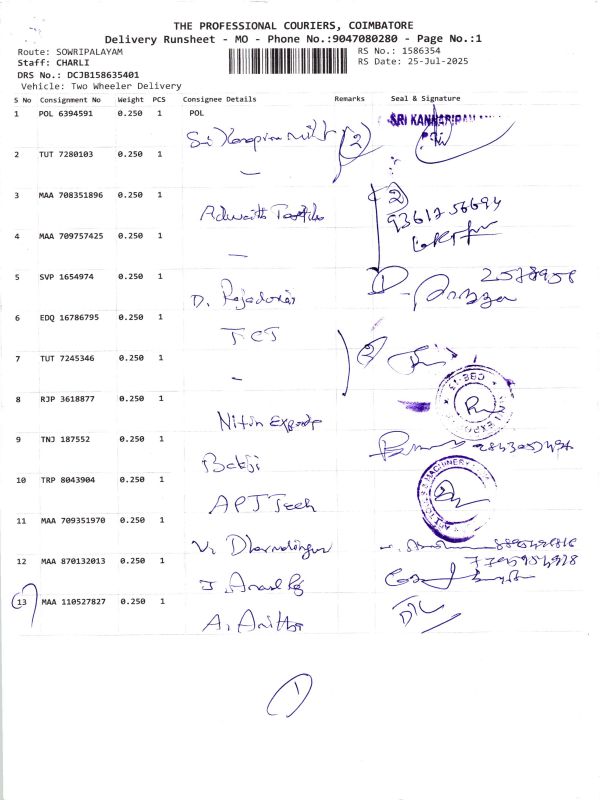 THE PROFESSIONAL COURIERS, COIMBATORE
Delivery Runsheet - MO - Phone No.:9047080280 - Page No.:1
Route: SOWRIPALAYAM RS No.: 1586354
Staff: CHARLI RS Date: 25-Jul-2025
DRS No.: DCJB158635401
Vehicle: Two Wheeler Delivery
S No Consignment No Weight PCS Consignee Details Remarks Seal & Signature
1 POL 6394591 0.250 1 POL
Sri (2)
2 TUT 7280103 0.250 1
3 MAA 708351896 0.250 1 (2)
Adwaith Textiles
4 MAA 709757425 0.250 1
5 SVP 1654974 0.250 1 (1)
D.
6 EDQ 16786795 0.250 1
TCT (2)
7 TUT 7245346 0.250 1
8 RJP 3618877 0.250 1
Nitin Exports
9 TNJ 187552 0.250 1
Balaji
10 TRP 8043904 0.250 1
APT Tech
11 MAA 709351970 0.250 1
V.
12 MAA 870132013 0.250 1
J.
13 MAA 110527827 0.250 1
A. Anitha
1